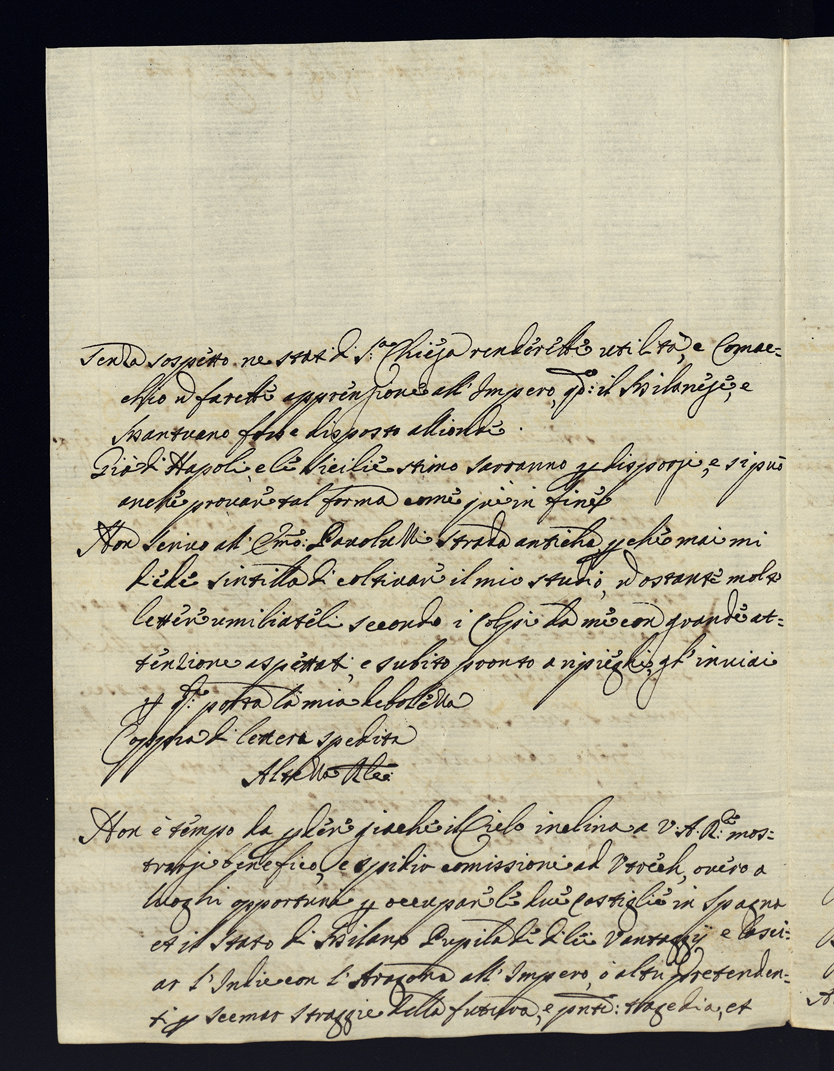 Senza sospetto ne stati di S.ta Chiesa renderette utilità, e Comac=
chio ñ farette apprensione all' Impero, qdo: il Milanese, e
Mantuano fosse disposto all'ionde.
Già di Napoli e le Sicilie stimo saranno p disporsi, e si può
anche provare tal forma come in fine
Non scrivo all' Emo: Paolucci strada anticha p che mai mi
diede sintilla di coltivare il mio studio, ñ ostante molte
lettere umiliateli secondo i Colpi da me con grande at=
tenzione aspettati, e subito pronto a ripieghi, gl' inviai
p potea la mia debolezza
Coppia di lettera spedita
Altezza Rle:
Non è tempo da pdere giache il Cielo inclina a V. A. R.le mos=
trarsi benefico, e spidir comissioni ad Vtrech, overo a
luoghi opportuni p occupare le due Castiglie in Spagna
et il Stato di Milano Pupila de di lei Vantaggij e lasci=
ar l' Indie con l' Aragona all' Impero, o altri pretenden=
ti p scemar straggie della futura, e pnte: tragedia, et